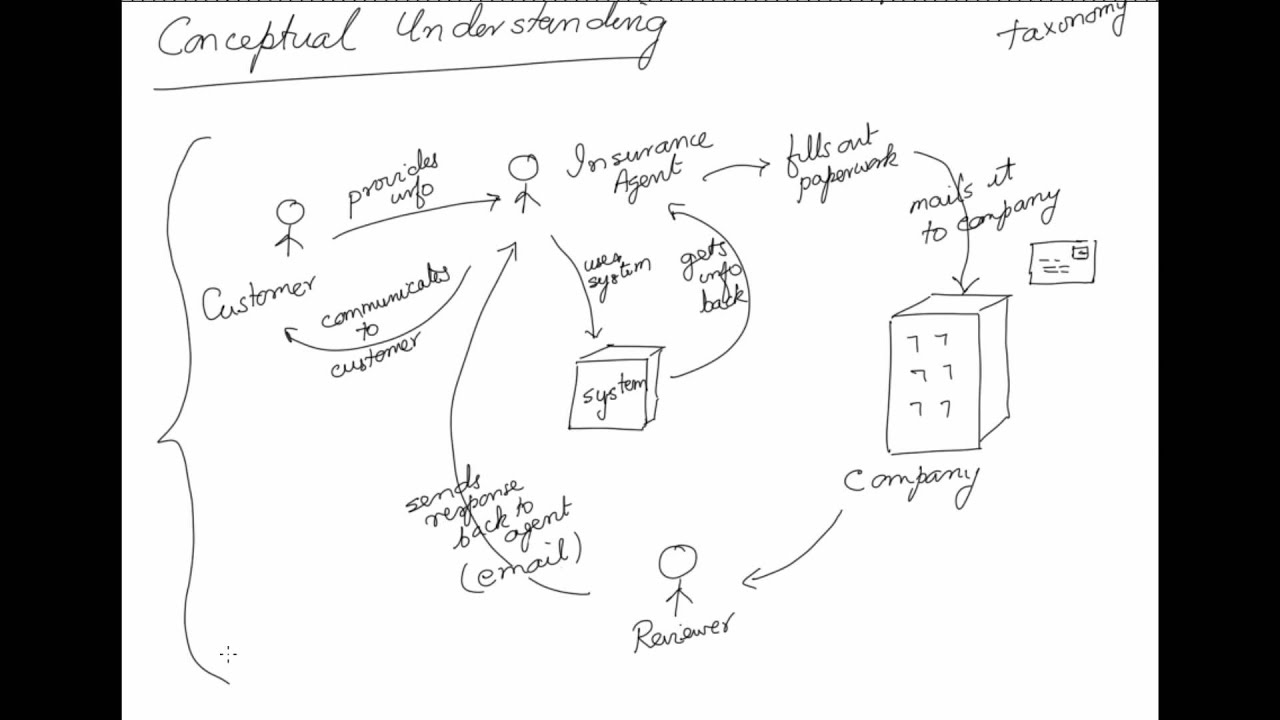 Conceptual Understanding
taxonomy
provides
info
Insurance
Agent
fills out
paperwork
mails it
to company
Customer
communicates
to
customer
uses
system
gets
info
back
system
company
sends
response
back to
agent
(email)
Reviewer